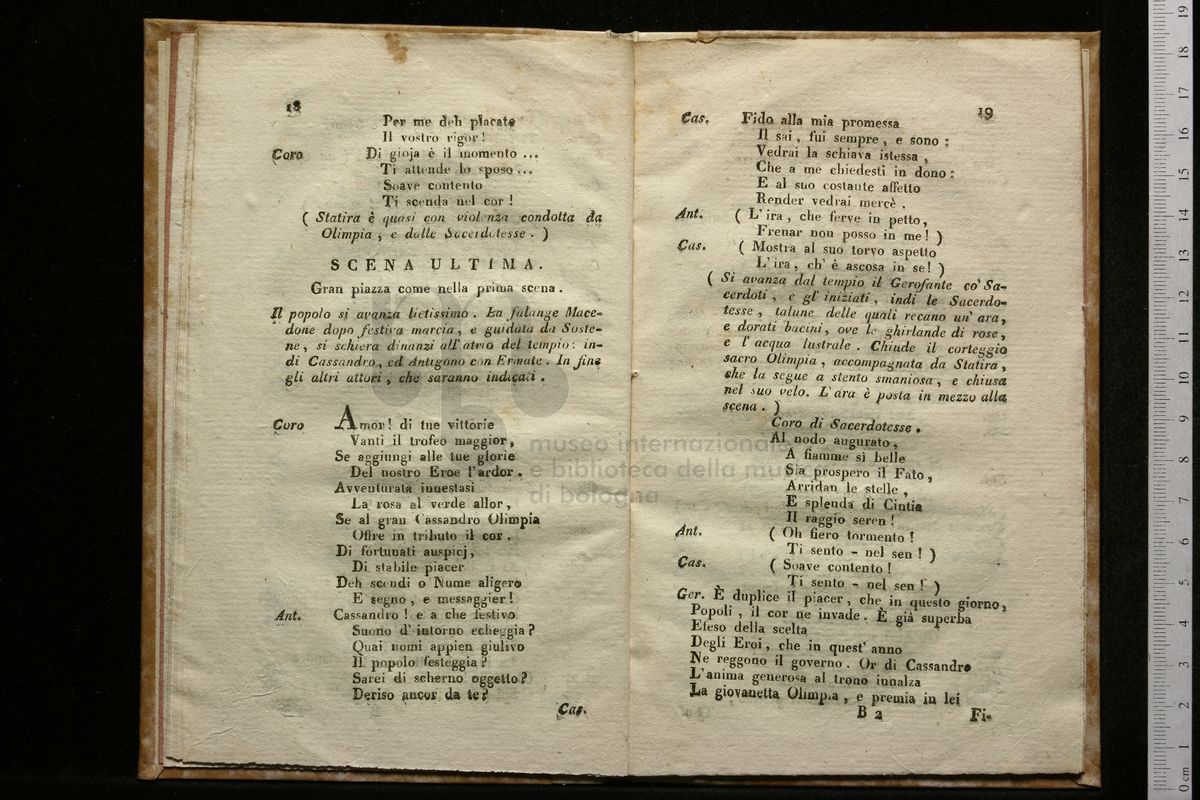 18
Per me deh placate
Il vostro rigor!
Coro Di gioja è il momento ...
Ti attende lo sposo ...
Soave contento
Ti scenda nel cor!
( Statira è quasi con violenza condotta da
Olimpia, e dalle Sacerdotesse. )
SCENA ULTIMA.
Gran piazza come nella prima scena.
Il popolo si avanza lietissimo. La falange Mace-
done dopo festiva marcia, e guidata da Soste-
ne, si schiera dinanzi all'atrio del tempio: in-
di Cassandro, ed Antigono con Ermate. In fine
gli altri attori, che saranno indicati.
Coro Amor! di tue vittorie
Vanti il trofeo maggior,
Se aggiungi alle tue glorie
Del nostro Eroe l'ardor.
Avventurata innestasi
La rosa al verde allor,
Se al gran Cassandro Olimpia
Offre in tributo il cor.
Di fortunati auspicj,
Di stabile piacer
Deh scendi o Nume aligero
E segno, e messaggier!
Ant. Cassandro! e a che festivo
Suono d'intorno echeggia?
Quai nomi appien giulivo
Il popolo festeggia?
Sarei di scherno oggetto?
Deriso ancor da te?
Cas.
19
Cas. Fido alla mia promessa
Il sai, fui sempre, e sono:
Vedrai la schiava istessa,
Che a me chiedesti in dono:
E al suo costante affetto
Render vedrai mercè.
Ant. ( L'ira, che ferve in petto,
Frenar non posso in me! )
Cas. ( Mostra al suo torvo aspetto
L'ira, ch'è ascosa in se! )
( Si avanza dal tempio il Gerofante co' Sa-
cerdoti, e gl'iniziati, indi le Sacerdo-
tesse, talune delle quali recano un'ara,
e dorati bacini, ove le ghirlande di rose,
e l'acqua lustrale. Chiude il corteggio
sacro Olimpia, accompagnata da Statira,
che la segue a stento smaniosa, e chiusa
nel suo velo. L'ara è posta in mezzo alla
scena. )
Coro di Sacerdotesse.
Al nodo augurato,
A fiamme sì belle
Sia prospero il Fato,
Arridan le stelle,
E splenda di Cintia
Il raggio seren!
Ant. ( Oh fiero tormento!
Ti sento - nel sen! )
Cas. ( Soave contento!
Ti sento - nel sen! )
Ger. È duplice il piacer, che in questo giorno,
Popoli, il cor ne invade. È già superba
Efeso della scelta
Degli Eroi, che in quest'anno
Ne reggono il governo. Or di Cassandro
L'anima generosa al trono innalza
La giovanetta Olimpia, e premia in lei
B 2 Fi-
museo internazionale
e biblioteca della mu
di bologna
0 cm 1 2 3 4 5 6 7 8 9 10 11 12 13 14 15 16 17 18 19